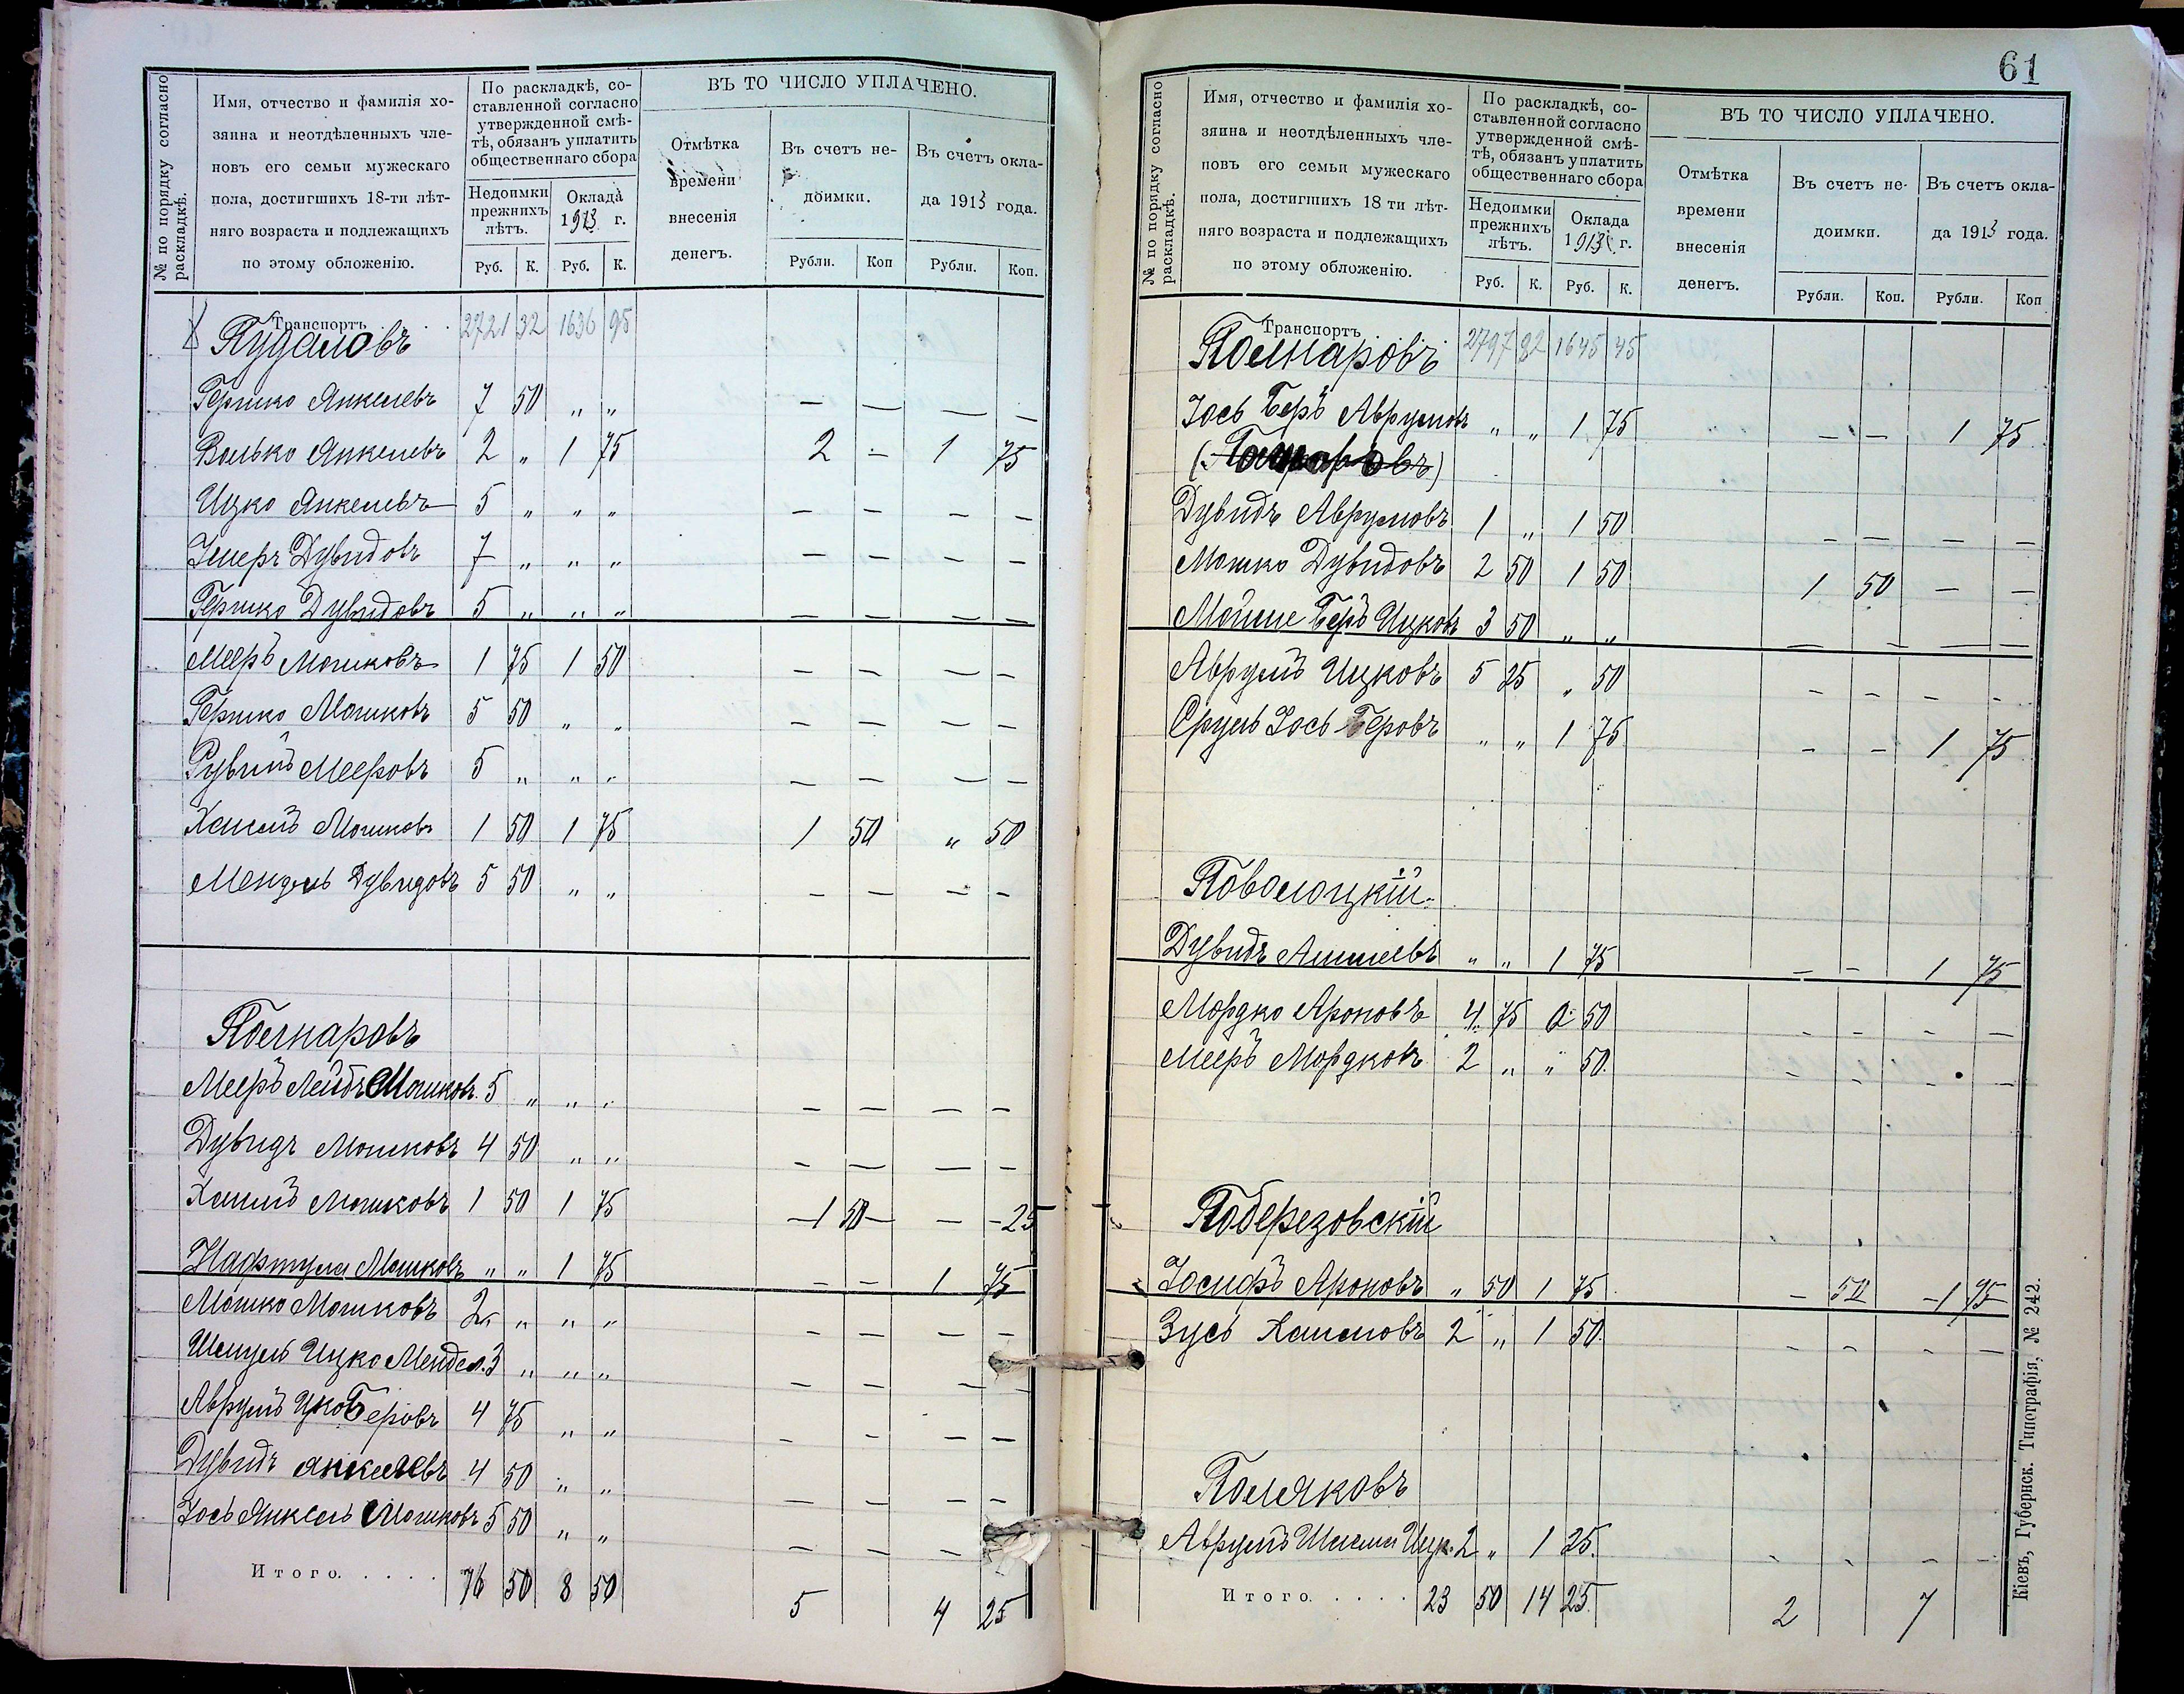 № по порядку согласно раскладкѣ.
Имя, отчество и фамилія хо-
зяина и неотдѣленныхъ чле-
новъ его семьи мужескаго
пола, достигшихъ 18-ти лѣт-
няго возраста и подлежащихъ
по этому обложенію.
По раскладкѣ, со-
ставленной согласно
утвержденной смѣ-
тѣ, обязанъ уплатить
общественнаго сбора
Недоимки
прежнихъ
лѣтъ.
Оклада
1913 г.
Руб. К. Руб. К.
ВЪ ТО ЧИСЛО УПЛАЧЕНО.
Отмѣтка
времени
внесенія
денегъ.
Въ счетъ не-
доимки.
Въ счетъ окла-
да 1913 года.
Рубли. Коп Рубли. Коп.
Транспортъ 2721 32 1636 95
Пудаловъ
Гершко Янкелевъ 7 50 " " — — — —
Волько Янкелевъ 2 " 1 75 2 - 1 75
Ицко Янкелевъ 5 " " " — — — —
Змеръ Дувидовъ 7 " " " — — — —
Гершко Дувидовъ 5 " " " — — — —
Мееръ Мошковъ 1 75 1 50 — — — —
Гершко Мошковъ 5 50 " " — — — —
Рувинъ Мееровъ 5 " " " — — — —
Хаимъ Мошковъ 1 50 1 75 1 50 " 50
Мендель Дувидовъ 5 50 " " — — — —
Полнаровъ
Мееръ Лейбъ Мошковъ. 5 " " " — — — —
Дувидъ Мошковъ 4 50 " " — — — —
Хаимъ Мошковъ 1 50 1 75 — 1 50 — — - 25
Нафтула Мошковъ " " 1 75 — — 1 75
Мошко Мошковъ 2 " " " — — — —
Шмуль Ицко Мендел. 3 " " " — — — —
Аврумъ Ицко Беровъ 4 75 " " — — — —
Дувидъ Янкелевъ 4 50 " " — — — —
Іось Янкель Мошковъ 5 50 " " — — —
Итого. . . . . 76 50 8 50 5 4 25
61
№ по порядку согласно раскладкѣ.
Имя, отчество и фамилія хо-
зяина и неотдѣленныхъ чле-
новъ его семьи мужескаго
пола, достигшихъ 18 ти лѣт-
няго возраста и подлежащихъ
по этому обложенію.
По раскладкѣ, со-
ставленной согласно
утвержденной смѣ-
тѣ, обязанъ уплатить
общественнаго сбора
Недоимки
прежнихъ
лѣтъ.
Оклада
1913 г.
Руб. К. Руб. К.
ВЪ ТО ЧИСЛО УПЛАЧЕНО.
Отмѣтка
времени
внесенія
денегъ.
Въ счетъ не-
доимки.
Въ счетъ окла-
да 1913 года.
Рубли. Коп. Рубли. Коп
Транспортъ 2797 82 1645 45
Полнаровъ
Іось Беръ Аврумовъ " " 1 75 — — 1 75
Дувидъ Аврумовъ 1 " 1 50 — — — —
Мошко Дувидовъ 2 50 1 50 1 50 — —
Мойше Беръ Ицковъ 3 50 " " — — — —
Аврумъ Ицковъ 5 25 " 50 - - - -
Сруль Іось Беровъ " " 1 75 - - 1 75
Поволоцкій
Дувидъ Аншелевъ " " 1 75 — - 1 75
Мордко Ароновъ 4 75 0 50 - - - —
Мееръ Мордковъ 2 " " 50. - - - —
Поберезовскій
Іосифъ Ароновъ " 50 1 75 — 50 — 1 75
Зусь Хаимовъ 2 " 1 50. - - - —
Поляковъ
Аврумъ Шмеми Ицк. 2 " 1 25. - - — -
Итого. . . . . 23 50 14 25. 2 7
Кіевъ, Губернск. Типографія, № 242.